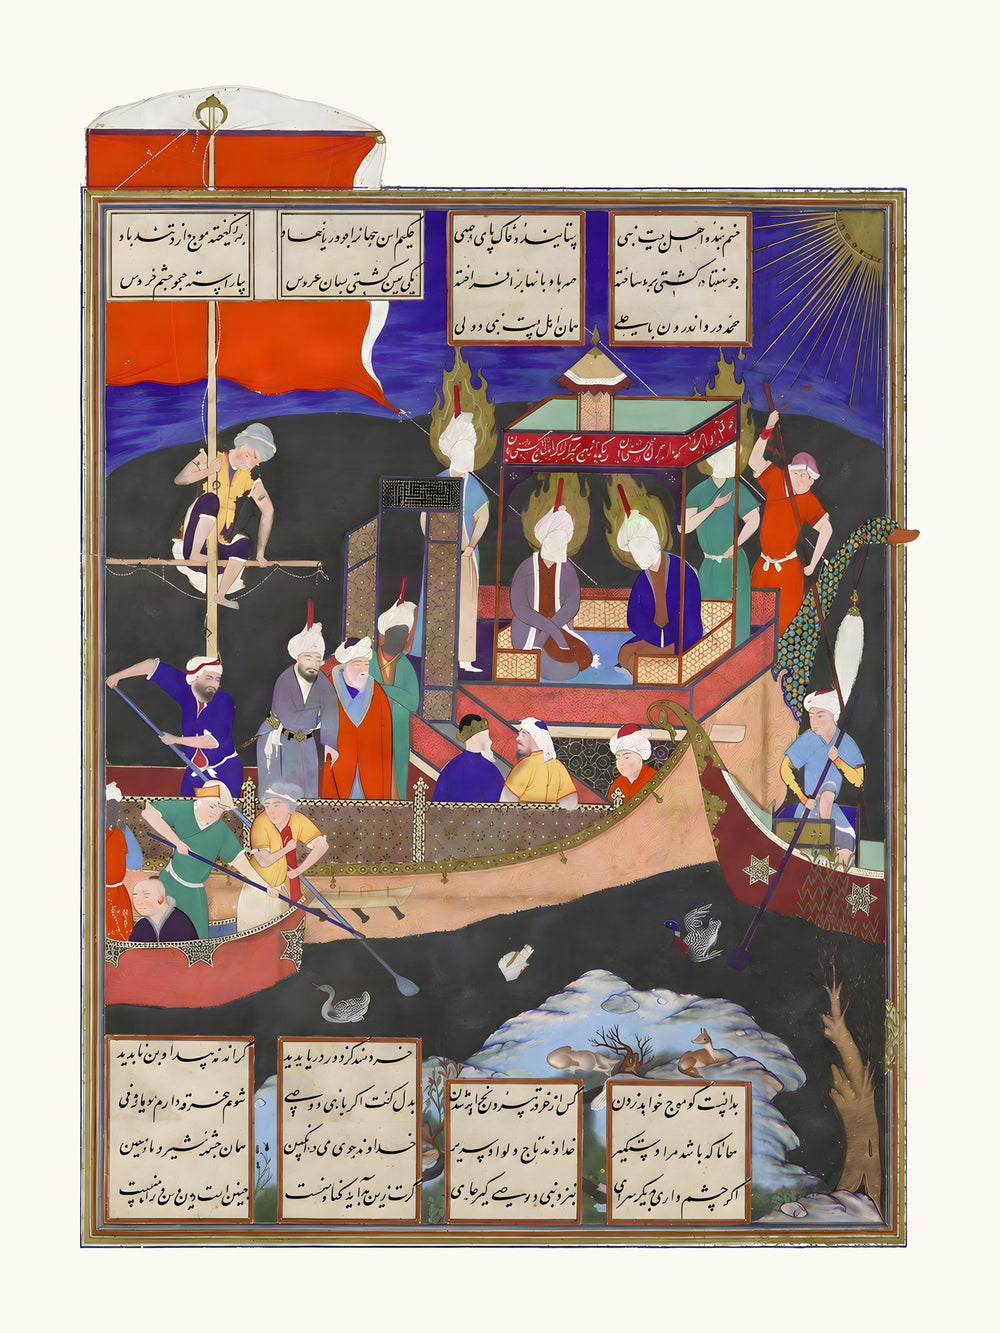 منم بنده و اهل بیت نبی
ستاینده و خاک پای وصی
حکیم این جهانرا چو دریا نهاد
برانگیخته موج ازو تند باد
چو هفتاد کشتی برو ساخته
همه بادبانها برافراخته
یکی پهن کشتی بسان عروس
بیاراسته همچو چشم خروس
محمد درو اندرون با علی
همان اهل بیت نبی و ولی
خردمند کز دور دریا بدید
کرانه نه پیدا و بن ناپدید
بدانست کو موج خواهد زدن
کس از غرق بیرون نخواهد شدن
بدل گفت اگر با نبی و وصی
شوم غرقه دارم دو یار وفی
همانا که باشد مرا دستگیر
خداوند تاج و لوا و سریر
خداوند جوی می و انگبین
همان چشمه شیر و ماء معین
اگر چشم داری بدیگر سرای
بنزد نبی و وصی گیر جای
گرت زین بد آید گناه منست
چنین است دین من راه منست